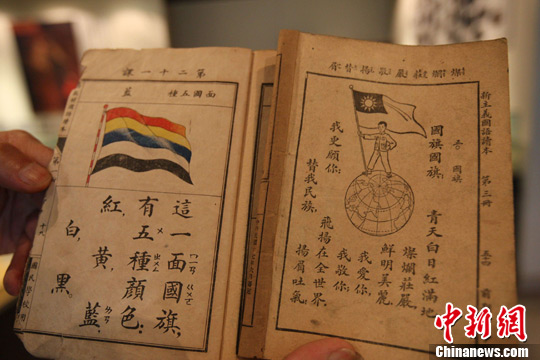 第二十一課
面國五種 藍
這一面國旗，
有五種顏色：
紅，黃，藍，
白，黑。
燦爛莊嚴敬揚替眉
國旗
國旗國旗，
青天白日紅滿地
燦爛莊嚴，
鮮明美麗，
我愛你，
我敬你，
我更願你，
飛揚在全世界，
替我民族，
揚眉吐氣
新主義國語讀本 第三冊
中新网
Chinanews.com